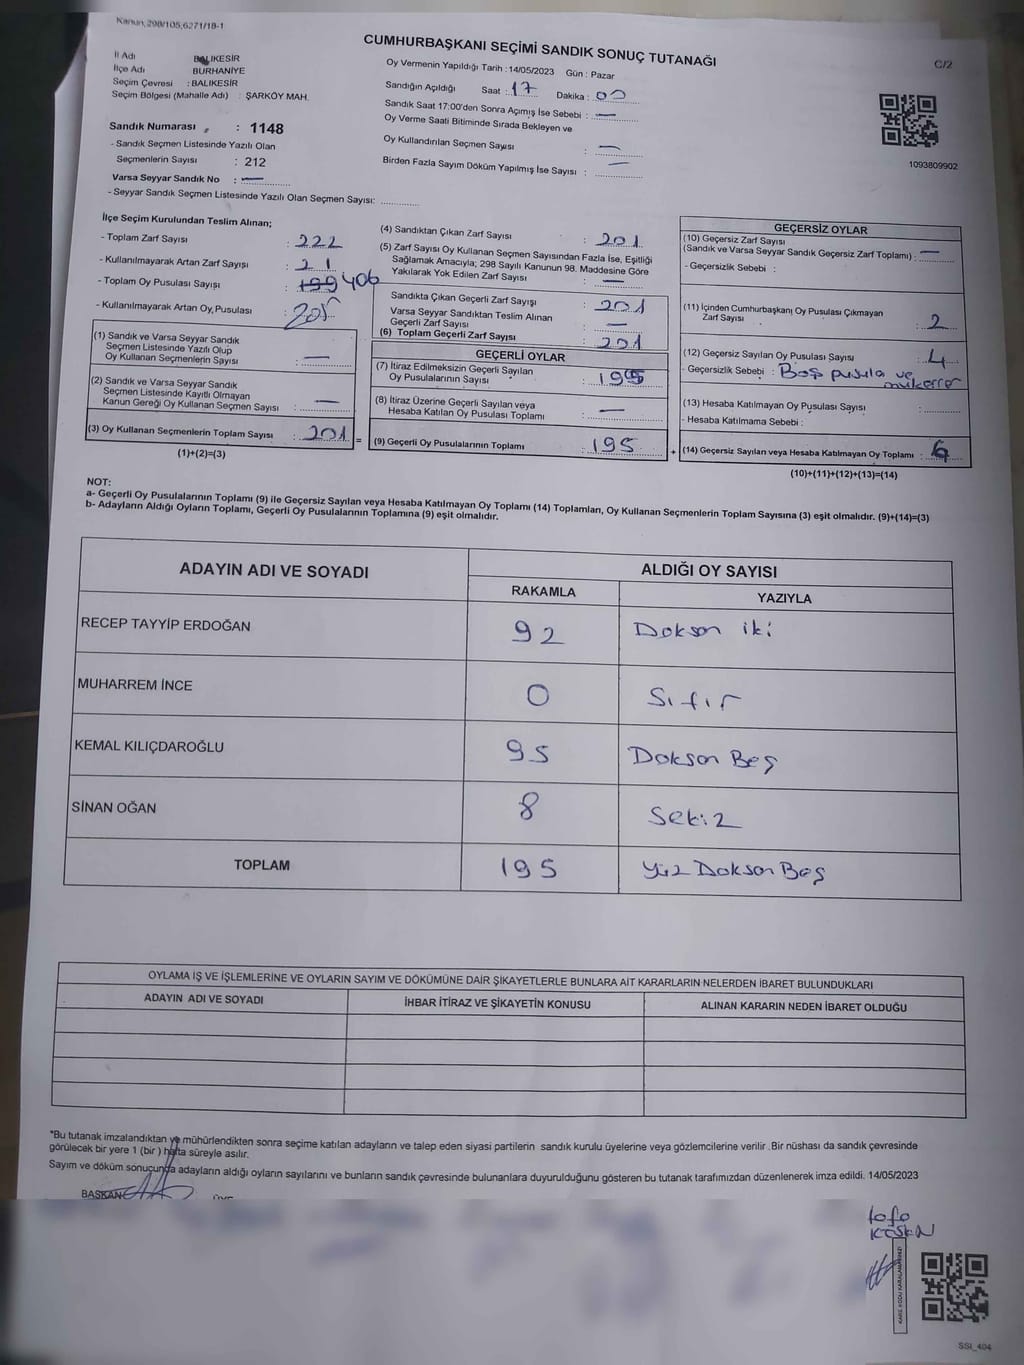 Kanun, 298/105,6271/18-1
CUMHURBAŞKANI SEÇİMİ SANDIK SONUÇ TUTANAĞI
C/2
İl Adı BALIKESİR
İlçe Adı BURHANİYE
Seçim Çevresi : BALIKESİR
Seçim Bölgesi (Mahalle Adı) : ŞARKÖY MAH.
Oy Vermenin Yapıldığı Tarih : 14/05/2023 Gün : Pazar
Sandığın Açıldığı Saat : 17 Dakika : 00
Sandık Saat 17:00'den Sonra Açımış İse Sebebi : —
Oy Verme Saati Bitiminde Sırada Bekleyen ve
Oy Kullandırılan Seçmen Sayısı : —
Birden Fazla Sayım Döküm Yapılmış İse Sayısı : —
1093809902
Sandık Numarası : 1148
- Sandık Seçmen Listesinde Yazılı Olan
Seçmenlerin Sayısı : 212
Varsa Seyyar Sandık No : —
- Seyyar Sandık Seçmen Listesinde Yazılı Olan Seçmen Sayısı:
İlçe Seçim Kurulundan Teslim Alınan;
- Toplam Zarf Sayısı : 222
- Kullanılmayarak Artan Zarf Sayısı : 21
- Toplam Oy Pusulası Sayısı : 199 406
- Kullanılmayarak Artan Oy Pusulası : 205
(1) Sandık ve Varsa Seyyar Sandık
Seçmen Listesinde Yazılı Olup
Oy Kullanan Seçmenlerin Sayısı : —
(2) Sandık ve Varsa Seyyar Sandık
Seçmen Listesinde Kayıtlı Olmayan
Kanun Gereği Oy Kullanan Seçmen Sayısı : —
(3) Oy Kullanan Seçmenlerin Toplam Sayısı : 201 =
(1)+(2)=(3)
(4) Sandıktan Çıkan Zarf Sayısı : 201
(5) Zarf Sayısı Oy Kullanan Seçmen Sayısından Fazla İse, Eşitliği
Sağlamak Amacıyla; 298 Sayılı Kanunun 98. Maddesine Göre
Yakılarak Yok Edilen Zarf Sayısı : —
Sandıkta Çıkan Geçerli Zarf Sayısı : 201
Varsa Seyyar Sandıktan Teslim Alınan
Geçerli Zarf Sayısı : —
(6) Toplam Geçerli Zarf Sayısı : 201
GEÇERLİ OYLAR
(7) İtiraz Edilmeksizin Geçerli Sayılan
Oy Pusulalarının Sayısı : 195
(8) İtiraz Üzerine Geçerli Sayılan veya
Hesaba Katılan Oy Pusulası Toplamı : —
(9) Geçerli Oy Pusulalarının Toplamı : 195 +
GEÇERSİZ OYLAR
(10) Geçersiz Zarf Sayısı
(Sandık ve Varsa Seyyar Sandık Geçersiz Zarf Toplamı) : —
- Geçersizlik Sebebi :
(11) İçinden Cumhurbaşkanı Oy Pusulası Çıkmayan
Zarf Sayısı : 2
(12) Geçersiz Sayılan Oy Pusulası Sayısı : 4
- Geçersizlik Sebebi : Boş pusula ve
mükerrer
(13) Hesaba Katılmayan Oy Pusulası Sayısı :
- Hesaba Katılmama Sebebi :
(14) Geçersiz Sayılan veya Hesaba Katılmayan Oy Toplamı : 6
(10)+(11)+(12)+(13)=(14)
NOT:
a- Geçerli Oy Pusulalarının Toplamı (9) ile Geçersiz Sayılan veya Hesaba Katılmayan Oy Toplamı (14) Toplamları, Oy Kullanan Seçmenlerin Toplam Sayısına (3) eşit olmalıdır. (9)+(14)=(3)
b- Adayların Aldığı Oyların Toplamı, Geçerli Oy Pusulalarının Toplamına (9) eşit olmalıdır.
ADAYIN ADI VE SOYADI
ALDIĞI OY SAYISI
RAKAMLA YAZIYLA
RECEP TAYYİP ERDOĞAN 92 Dokson iki
MUHARREM İNCE 0 Sıfır
KEMAL KILIÇDAROĞLU 95 Dokson Beş
SİNAN OĞAN 8 Sekiz
TOPLAM 195 Yüz Dokson Beş
OYLAMA İŞ VE İŞLEMLERİNE VE OYLARIN SAYIM VE DÖKÜMÜNE DAİR ŞİKAYETLERLE BUNLARA AİT KARARLARIN NELERDEN İBARET BULUNDUKLARI
ADAYIN ADI VE SOYADI İHBAR İTİRAZ VE ŞİKAYETİN KONUSU ALINAN KARARIN NEDEN İBARET OLDUĞU
*Bu tutanak imzalandıktan ve mühürlendikten sonra seçime katılan adayların ve talep eden siyasi partilerin sandık kurulu üyelerine veya gözlemcilerine verilir .Bir nüshası da sandık çevresinde
görülecek bir yere 1 (bir ) hafta süreyle asılır.
Sayım ve döküm sonucunda adayların aldığı oyların sayılarını ve bunların sandık çevresinde bulunanlara duyurulduğunu gösteren bu tutanak tarafımızdan düzenlenerek imza edildi. 14/05/2023
BAŞKAN
KARE KODU KARALAMAYINIZ!
SSI_404